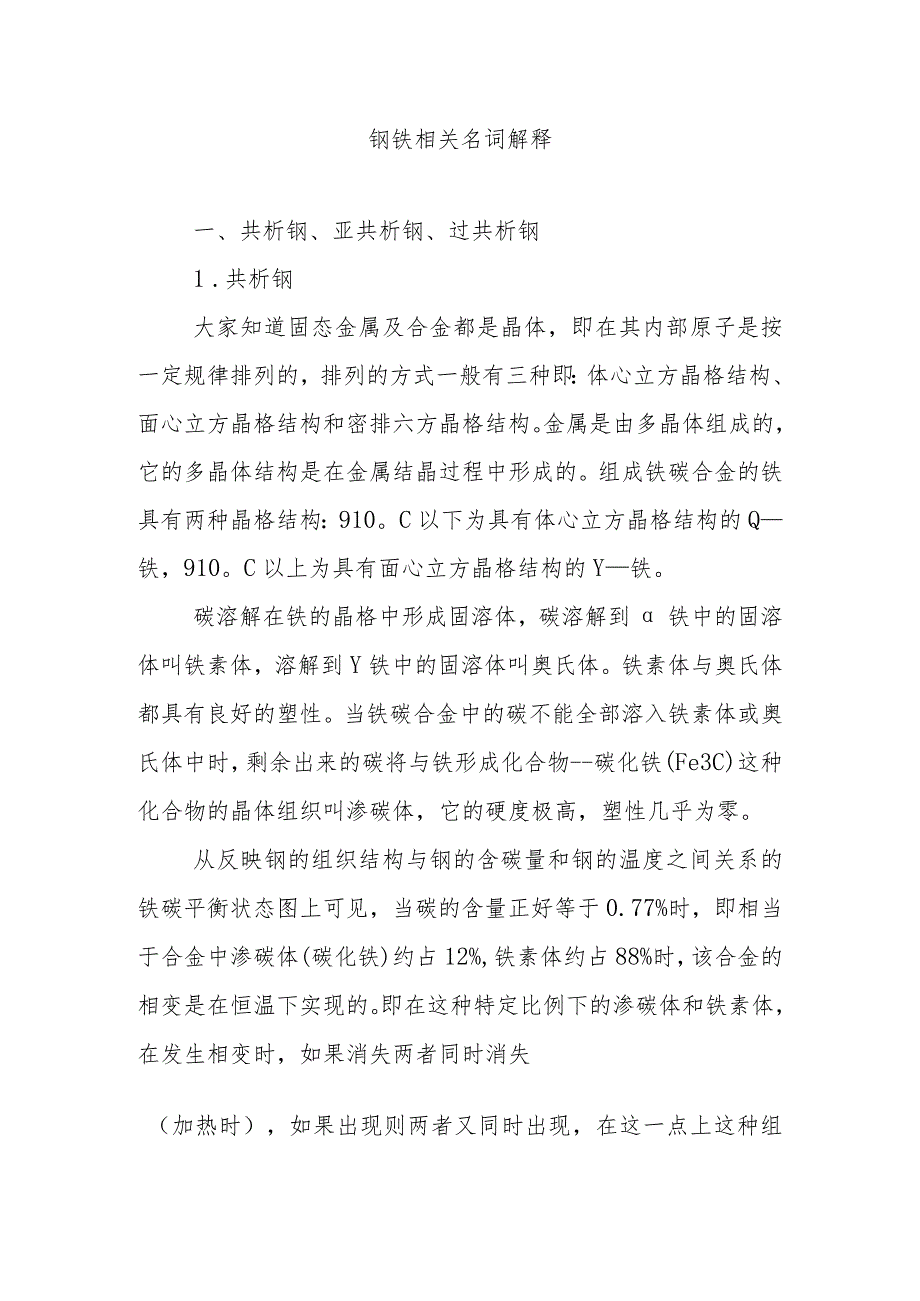 钢铁相关名词解释
一、共析钢、亚共析钢、过共析钢
1.共析钢
大家知道固态金属及合金都是晶体，即在其内部原子是按
一定规律排列的，排列的方式一般有三种即：体心立方晶格结构、
面心立方晶格结构和密排六方晶格结构。金属是由多晶体组成的，
它的多晶体结构是在金属结晶过程中形成的。组成铁碳合金的铁
具有两种晶格结构：910。C以下为具有体心立方晶格结构的Q—
铁，910。C以上为具有面心立方晶格结构的Y—铁。
碳溶解在铁的晶格中形成固溶体，碳溶解到α铁中的固溶
体叫铁素体，溶解到Y铁中的固溶体叫奥氏体。铁素体与奥氏体
都具有良好的塑性。当铁碳合金中的碳不能全部溶入铁素体或奥
氏体中时，剩余出来的碳将与铁形成化合物--碳化铁(Fe3C)这种
化合物的晶体组织叫渗碳体，它的硬度极高，塑性几乎为零。
从反映钢的组织结构与钢的含碳量和钢的温度之间关系的
铁碳平衡状态图上可见，当碳的含量正好等于0.77%时，即相当
于合金中渗碳体(碳化铁)约占12%,铁素体约占88%时，该合金的
相变是在恒温下实现的。即在这种特定比例下的渗碳体和铁素体，
在发生相变时，如果消失两者同时消失
（加热时），如果出现则两者又同时出现，在这一点上这种组